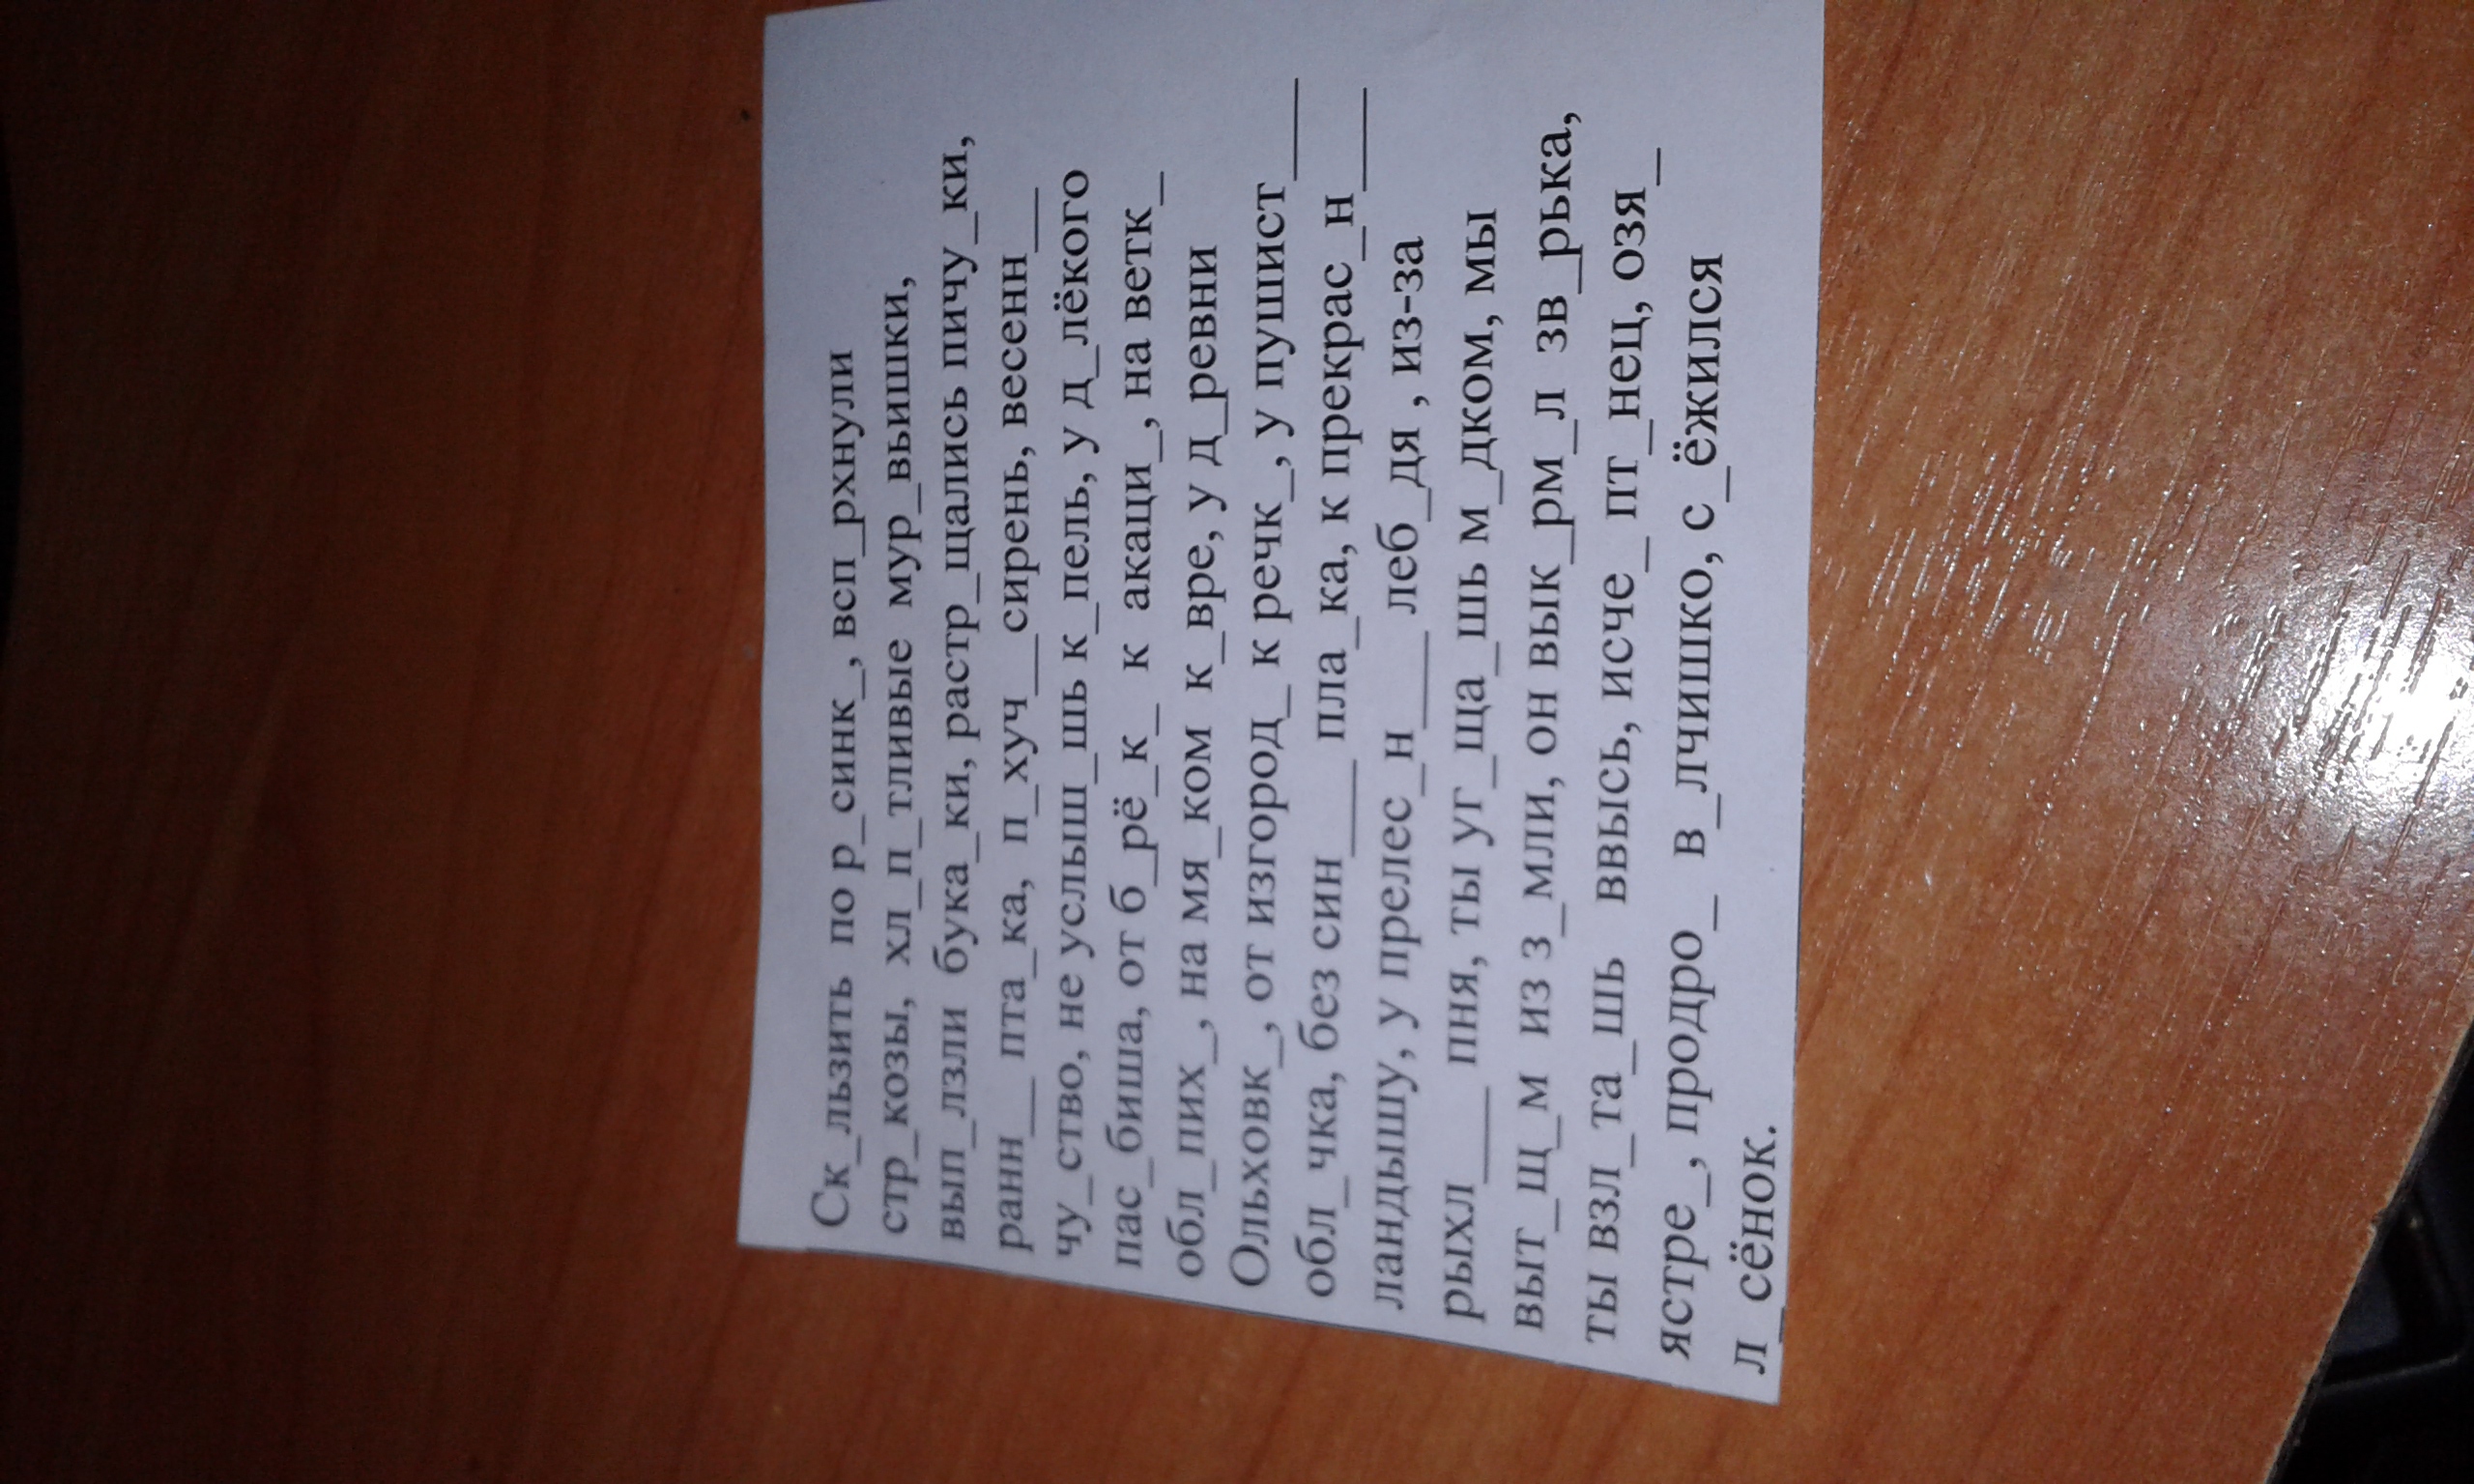 Ск_льзить по р_синк_, всп_рхнули
стр_козы, хл_п_тливые мур_вьишки,
вып_лзли бука_ки, растр_щались пичу_ки,
ранн__ пта_ка, п_хуч__ сирень, весенн__
чу_ство, не услыш_шь к_пель, у д_лёкого
пас_биша, от б_рё_к_ к акаци_, на ветк_
обл_пих_, на мя_ком к_вре, у д_ревни
Ольховк_, от изгород_ к речк_, у пушист___
обл_чка, без син___ пла_ка, к прекрас_н___
ландышу, у прелес_н___ леб_дя , из-за
рыхл___ пня, ты уг_ща_шь м_дком, мы
выт_щ_м из з_мли, он вык_рм_л зв_рька,
ты взл_та_шь ввысь, исче_ пт_нец, озя_
ястре_, продро_ в_лчишко, с_ёжился
л_сёнок.